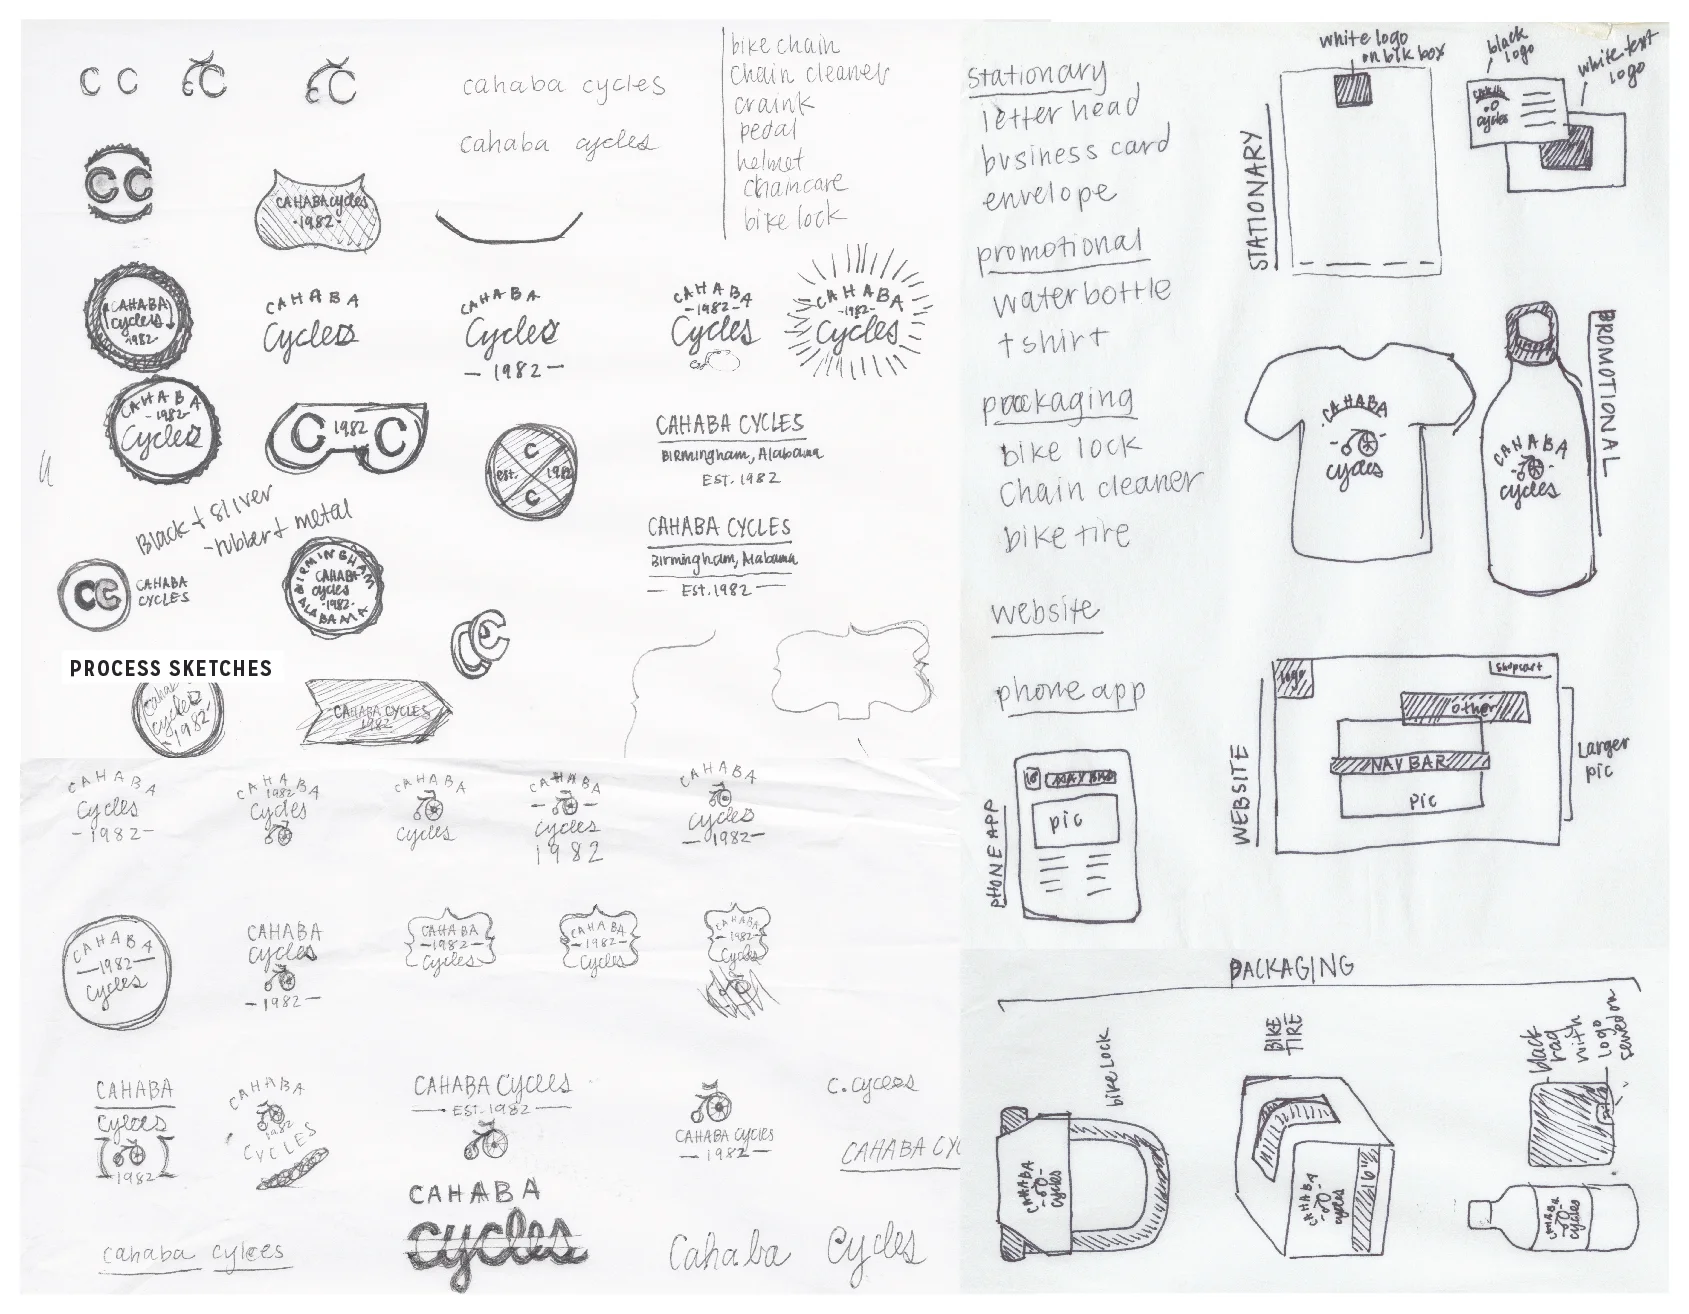 C C
cC
cC
cahaba cycles
cahaba cycles
bike chain
chain cleaner
craink
pedal
helmet
chaincare
bike lock
CC
CAHABA cycles
·1982·
CAHABA
cycles
1982
CAHABA
Cycles
CAHABA
Cycles
— 1982 —
CAHABA
-1982-
Cycles
CAHABA
-1982-
Cycles
CAHABA
-1982-
Cycles
C 1982 C
C
est. 1982
C
CAHABA CYCLES
Birmingham, Alabama
EST. 1982
Black + sliver
-rubber + metal
CAHABA CYCLES
Birmingham, Alabama
— EST. 1982 —
CC CAHABA
CYCLES
BIRMINGHAM
CAHABA
cycles
·1982·
ALABAMA
CC
PROCESS SKETCHES
cahaba
cycles
-1982-
CAHABA CYCLES
1982
CAHABA
Cycles
-1982-
CAHABA
1982
Cycles
CAHABA
cycles
CAHABA
cycles
1982
CAHABA
cycles
—1982—
CAHABA
—1982—
cycles
CAHABA
cycles
—1982—
CAHABA
-1982-
Cycles
CAHABA
-1982-
Cycles
CAHABA
-1982-
Cycles
CAHABA
cylces
-1982-
CAHABA
1982
CYCLES
CAHABA Cycles
— EST. 1982 —
CAHABA cycles
—1982—
c. cycles
CAHABA CYC
CAHABA
cycles
cahaba cylces
Cahaba Cycles
Stationary
letter head
business card
envelope
promotional
waterbottle
t shirt
packaging
bike lock
Chain cleaner
bike tire
website
phone app
STATIONARY
white logo
on blk box
black
logo
white text
logo
cycles
PROMOTIONAL
CAHABA
cycles
CAHABA
cycles
WEBSITE
logo
shopcart
other
NAV BAR
pic
Larger
pic
PHONE APP
NAV BAR
pic
PACKAGING
bike lock
CAHABA
cycles
BIKE
TIRE
CAHABA
cycles
16"
black
bag
with
logo
sewed on
CAHABA
cycles